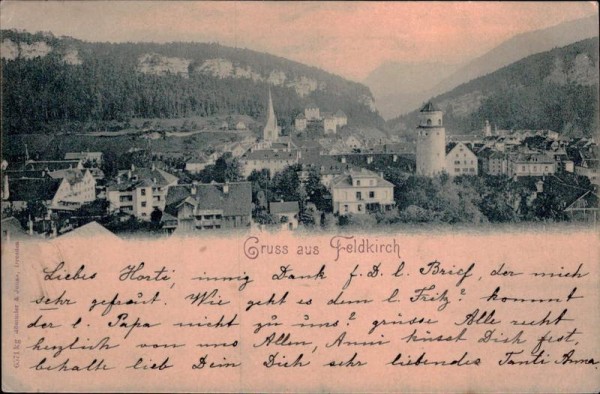 Gruss aus Feldkirch
Liebes Horti, innig Dank f. D. l. Brief, der mich
sehr gefreut. Wie geht es dem l. Fritz? kommt
der l. Papa nicht zu uns? grüsse Alle recht
herzlich von uns Allen, Anni küsst Dich fest,
behalte lieb Dein Dich sehr liebendes Tanti Anna.